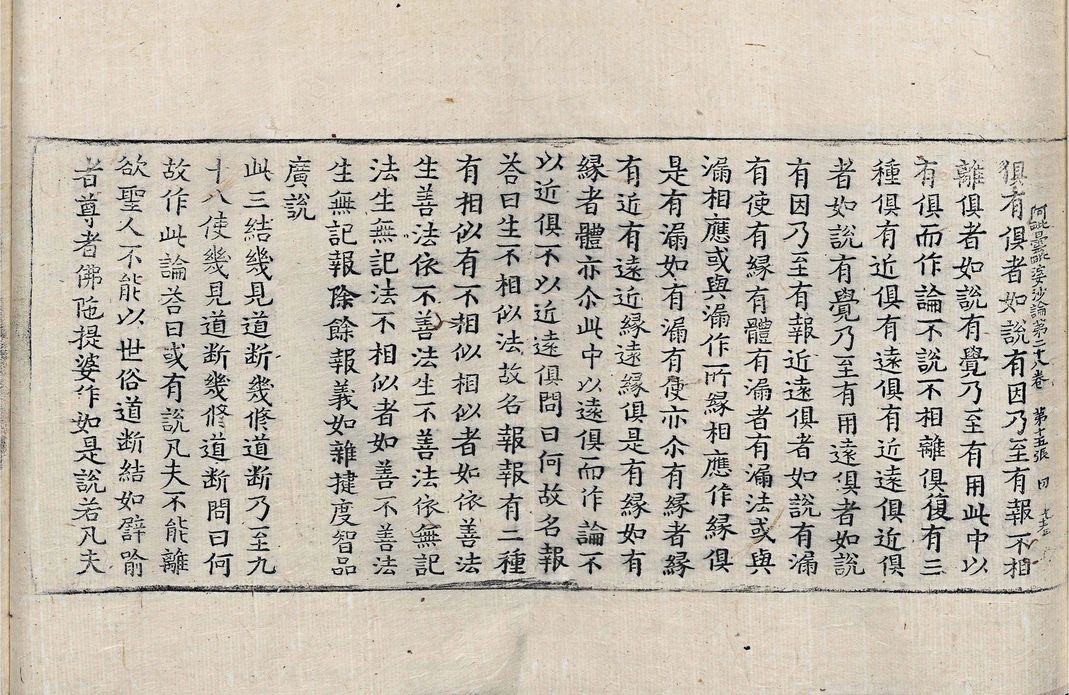 狙有俱者如說有因乃至有報不相
阿毗曇毗婆沙論第二十八卷 第十五張
離俱者如說有覺乃至有用此中以
有俱而作論不說不相離俱復有三
種俱有近俱有遠俱有近遠俱近俱
者如說有覺乃至有用遠俱者如說
有因乃至有報近遠俱者如說有漏
有使有緣有體有漏者有漏法或與
漏相應或與漏作所緣相應作緣俱
是有漏如有漏有使亦尒有緣者緣
有近有遠近緣遠緣俱是有緣如有
緣者體亦尒此中以遠俱而作論不
以近俱不以近遠俱問曰何故名報
荅曰生不相似法故名報報有二種
有相似有不相似相似者如依善法
生善法依不善法生不善法依無記
法生無記法不相似者如善不善法
生無記報除餘報義如雜揵度智品
廣說
此三結幾見道断幾修道断乃至九
十八使幾見道断幾修道断問曰何
故作此論荅曰或有說凡夫不能離
欲聖人不能以世俗道断結如譬喻
者尊者佛陁提婆作如是說若凡夫